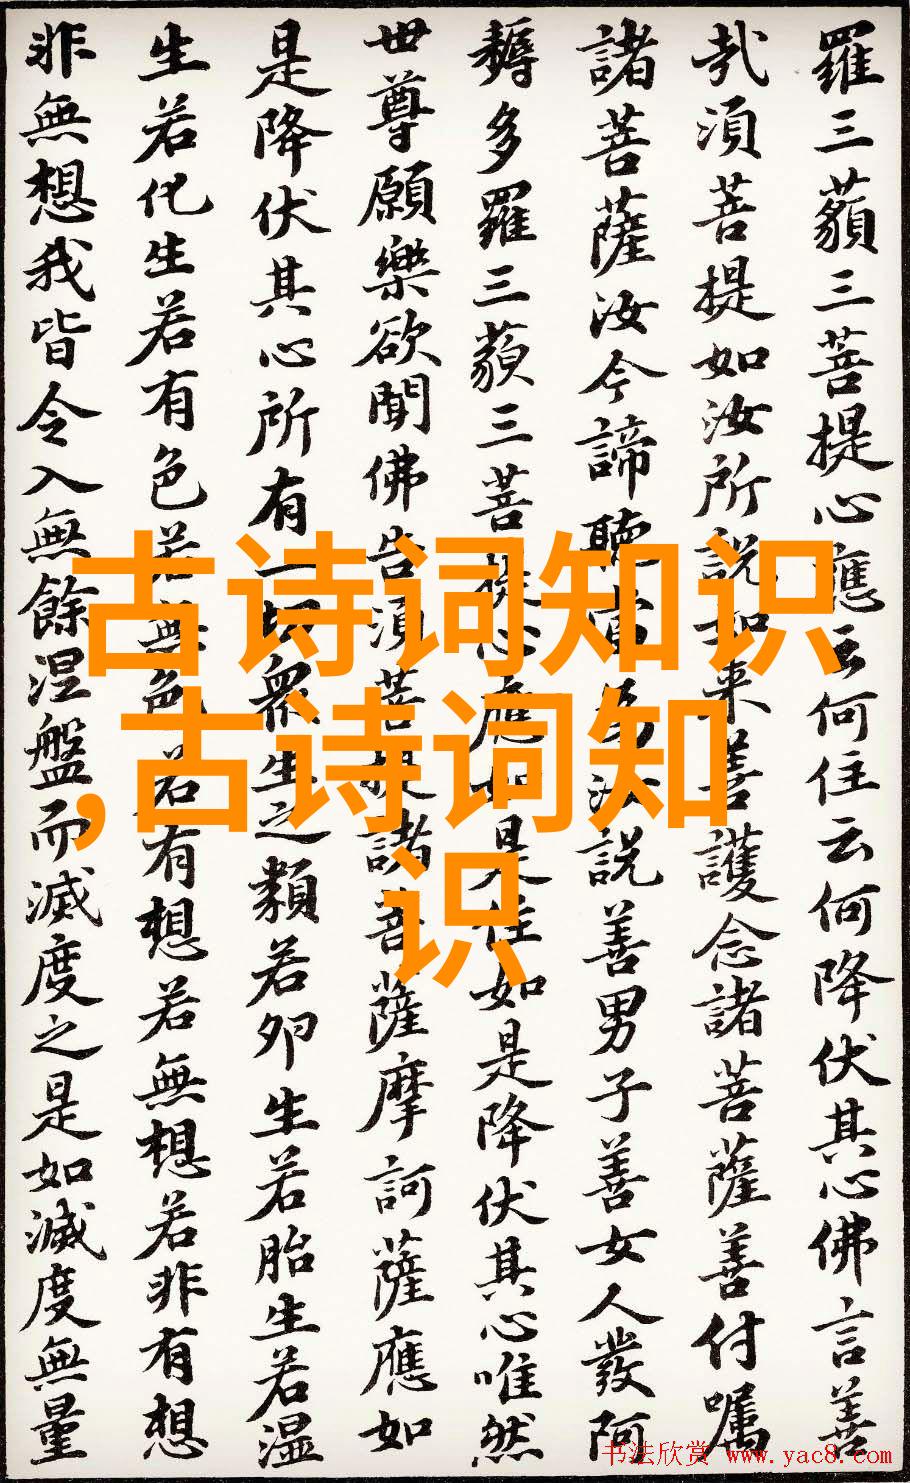 羅三藐三菩提心應云何住云何降伏其心佛言善
哉須菩提如汝所說如來善護念諸菩薩善付囑
諸菩薩汝今諦聽當為汝說善男子善女人發阿
耨多羅三藐三菩提心應如是住如是降伏其心唯然
世尊願樂欲聞佛告須菩提諸菩薩摩訶薩應如
是降伏其心所有一切眾生之類若卵生若胎生若溼
生若化生若有色若無色若有想若無想若非有想
非無想我皆令入無餘涅盤而滅度之是如滅度無量
古诗词知识
,古诗词知
识
书法欣赏 www.yac8.com